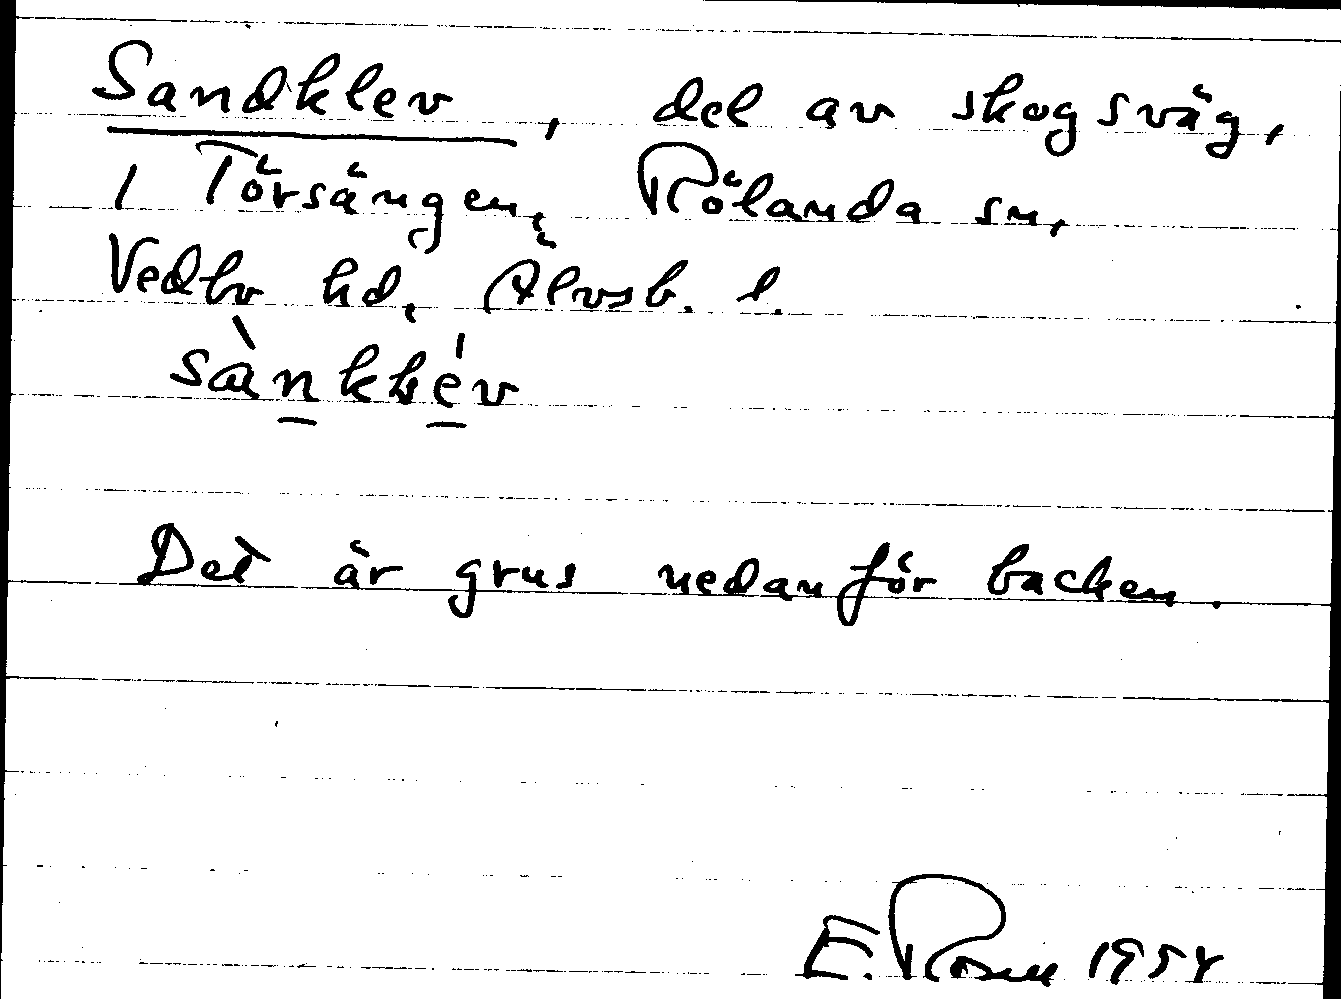 Sandklev, del av skogsväg,
i Törsängen, Rölanda sn,
Vedbo hd, Älvsb. l.
Det är grus nedanför backen.
E. Rosell 1954